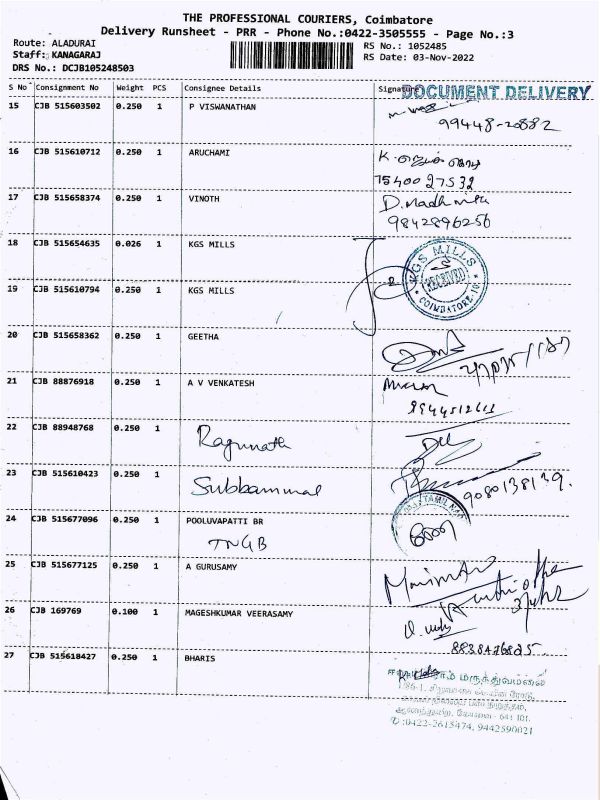 THE PROFESSIONAL COURIERS, Coimbatore
Delivery Runsheet - PRR - Phone No.:0422-3505555 - Page No.:3
Route: ALADURAI
Staff: KANAGARAJ
DRS No.: DCJB105248503
RS No.: 1052485
RS Date: 03-Nov-2022
S No Consignment No Weight PCS Consignee Details Signature
DOCUMENT DELIVERY
15 CJB 515603502 0.250 1 P VISWANATHAN
99448-20882
16 CJB 515610712 0.250 1 ARUCHAMI
75400 27532
17 CJB 515658374 0.250 1 VINOTH
9842896256
18 CJB 515654635 0.026 1 KGS MILLS
KGS MILLS
RECEIVED
COIMBATORE
19 CJB 515610794 0.250 1 KGS MILLS
20 CJB 515658362 0.250 1 GEETHA
21 CJB 88876918 0.250 1 A V VENKATESH
22 CJB 88948768 0.250 1 Ragunath
23 CJB 515610423 0.250 1 Subbammal
9080138139.
24 CJB 515677096 0.250 1 POOLUVAPATTI BR
TNGB
25 CJB 515677125 0.250 1 A GURUSAMY
26 CJB 169769 0.100 1 MAGESHKUMAR VEERASAMY
27 CJB 515618427 0.250 1 BHARIS
மருத்துவமனை
641 101.
✆:0422-2615474, 9442590021